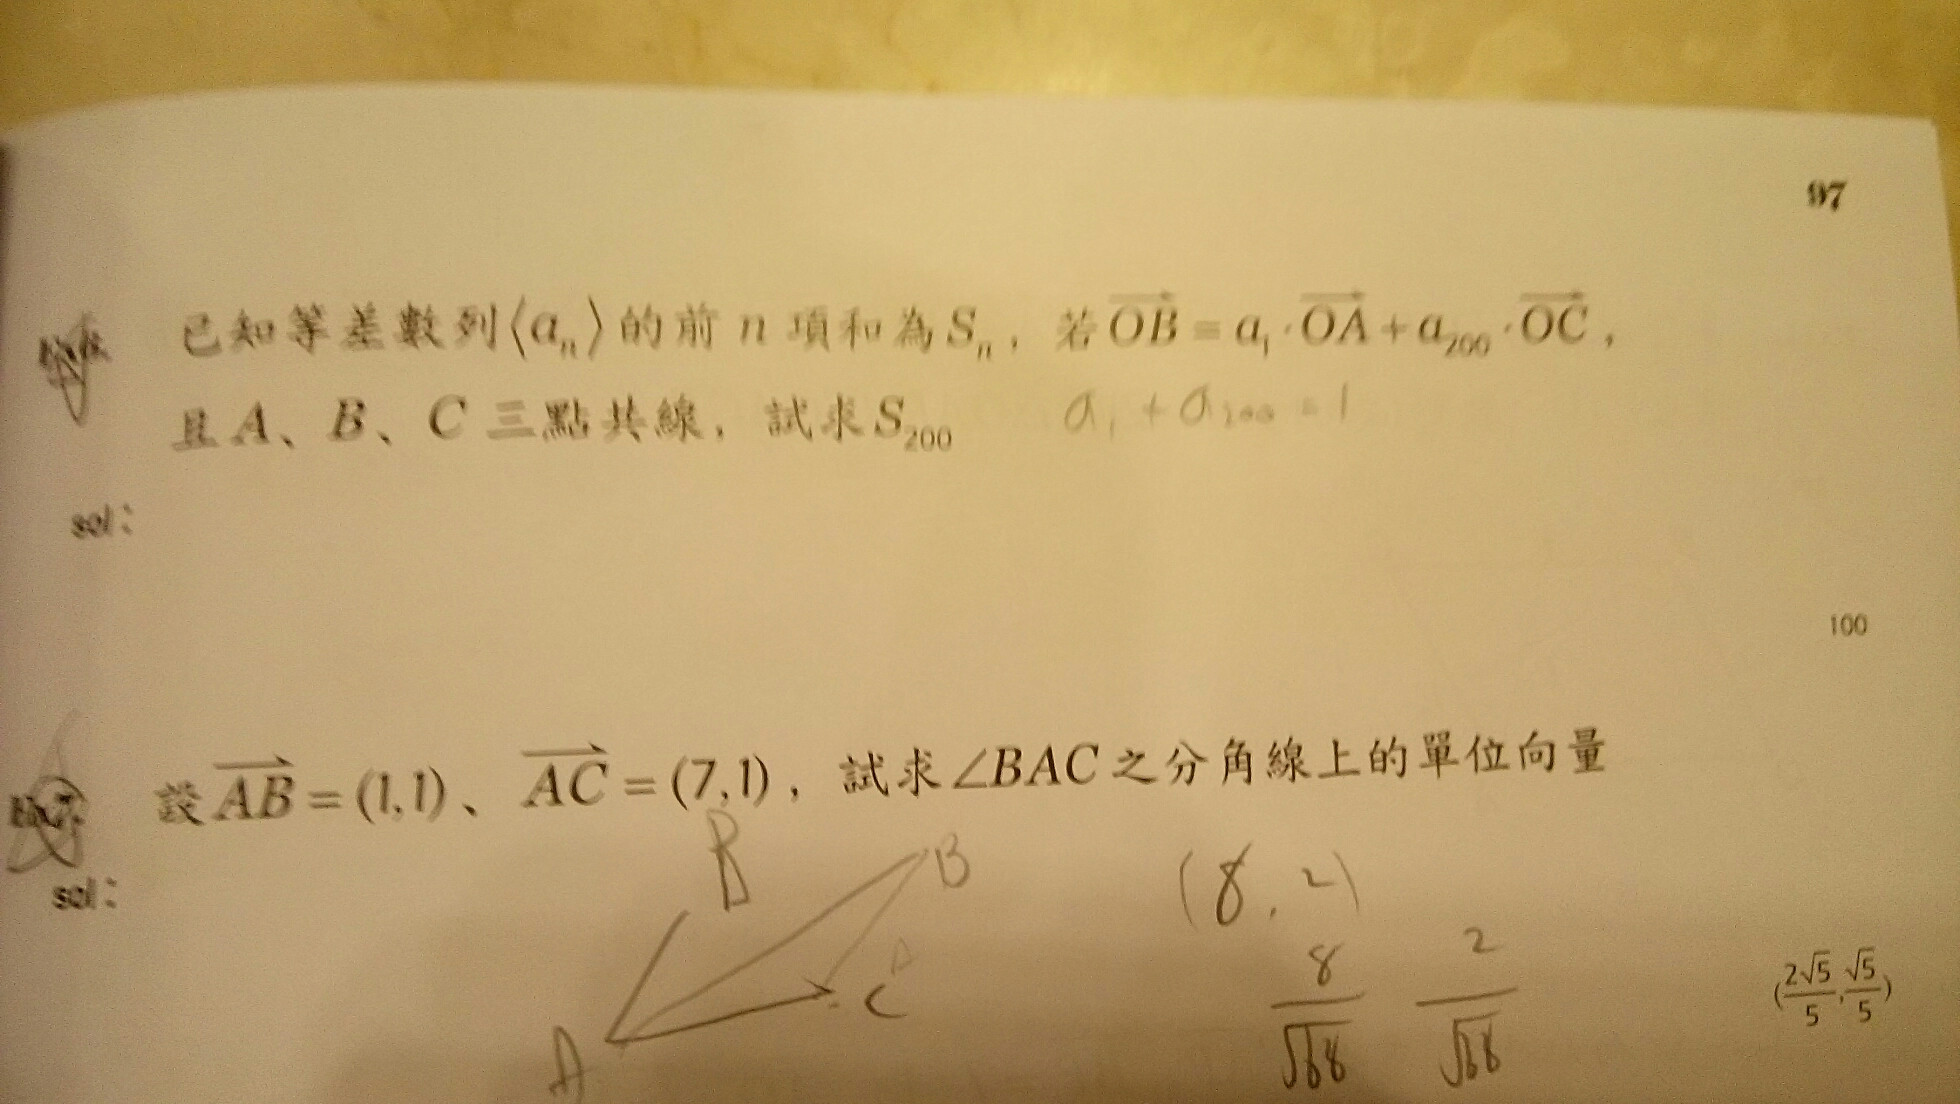 97
已知等差數列⟨aₙ⟩的前 n 項和為 Sₙ，若 OB = a₁·OA + a₂₀₀·OC，
且 A、B、C 三點共線，試求 S₂₀₀ a₁ + a₂₀₀ = 1
sol：
100
設 AB = (1,1)、AC = (7,1)，試求∠BAC之分角線上的單位向量
sol：
B
B
(8, 2)
C
A
8/√68 2/√68
(2√5/5, √5/5)